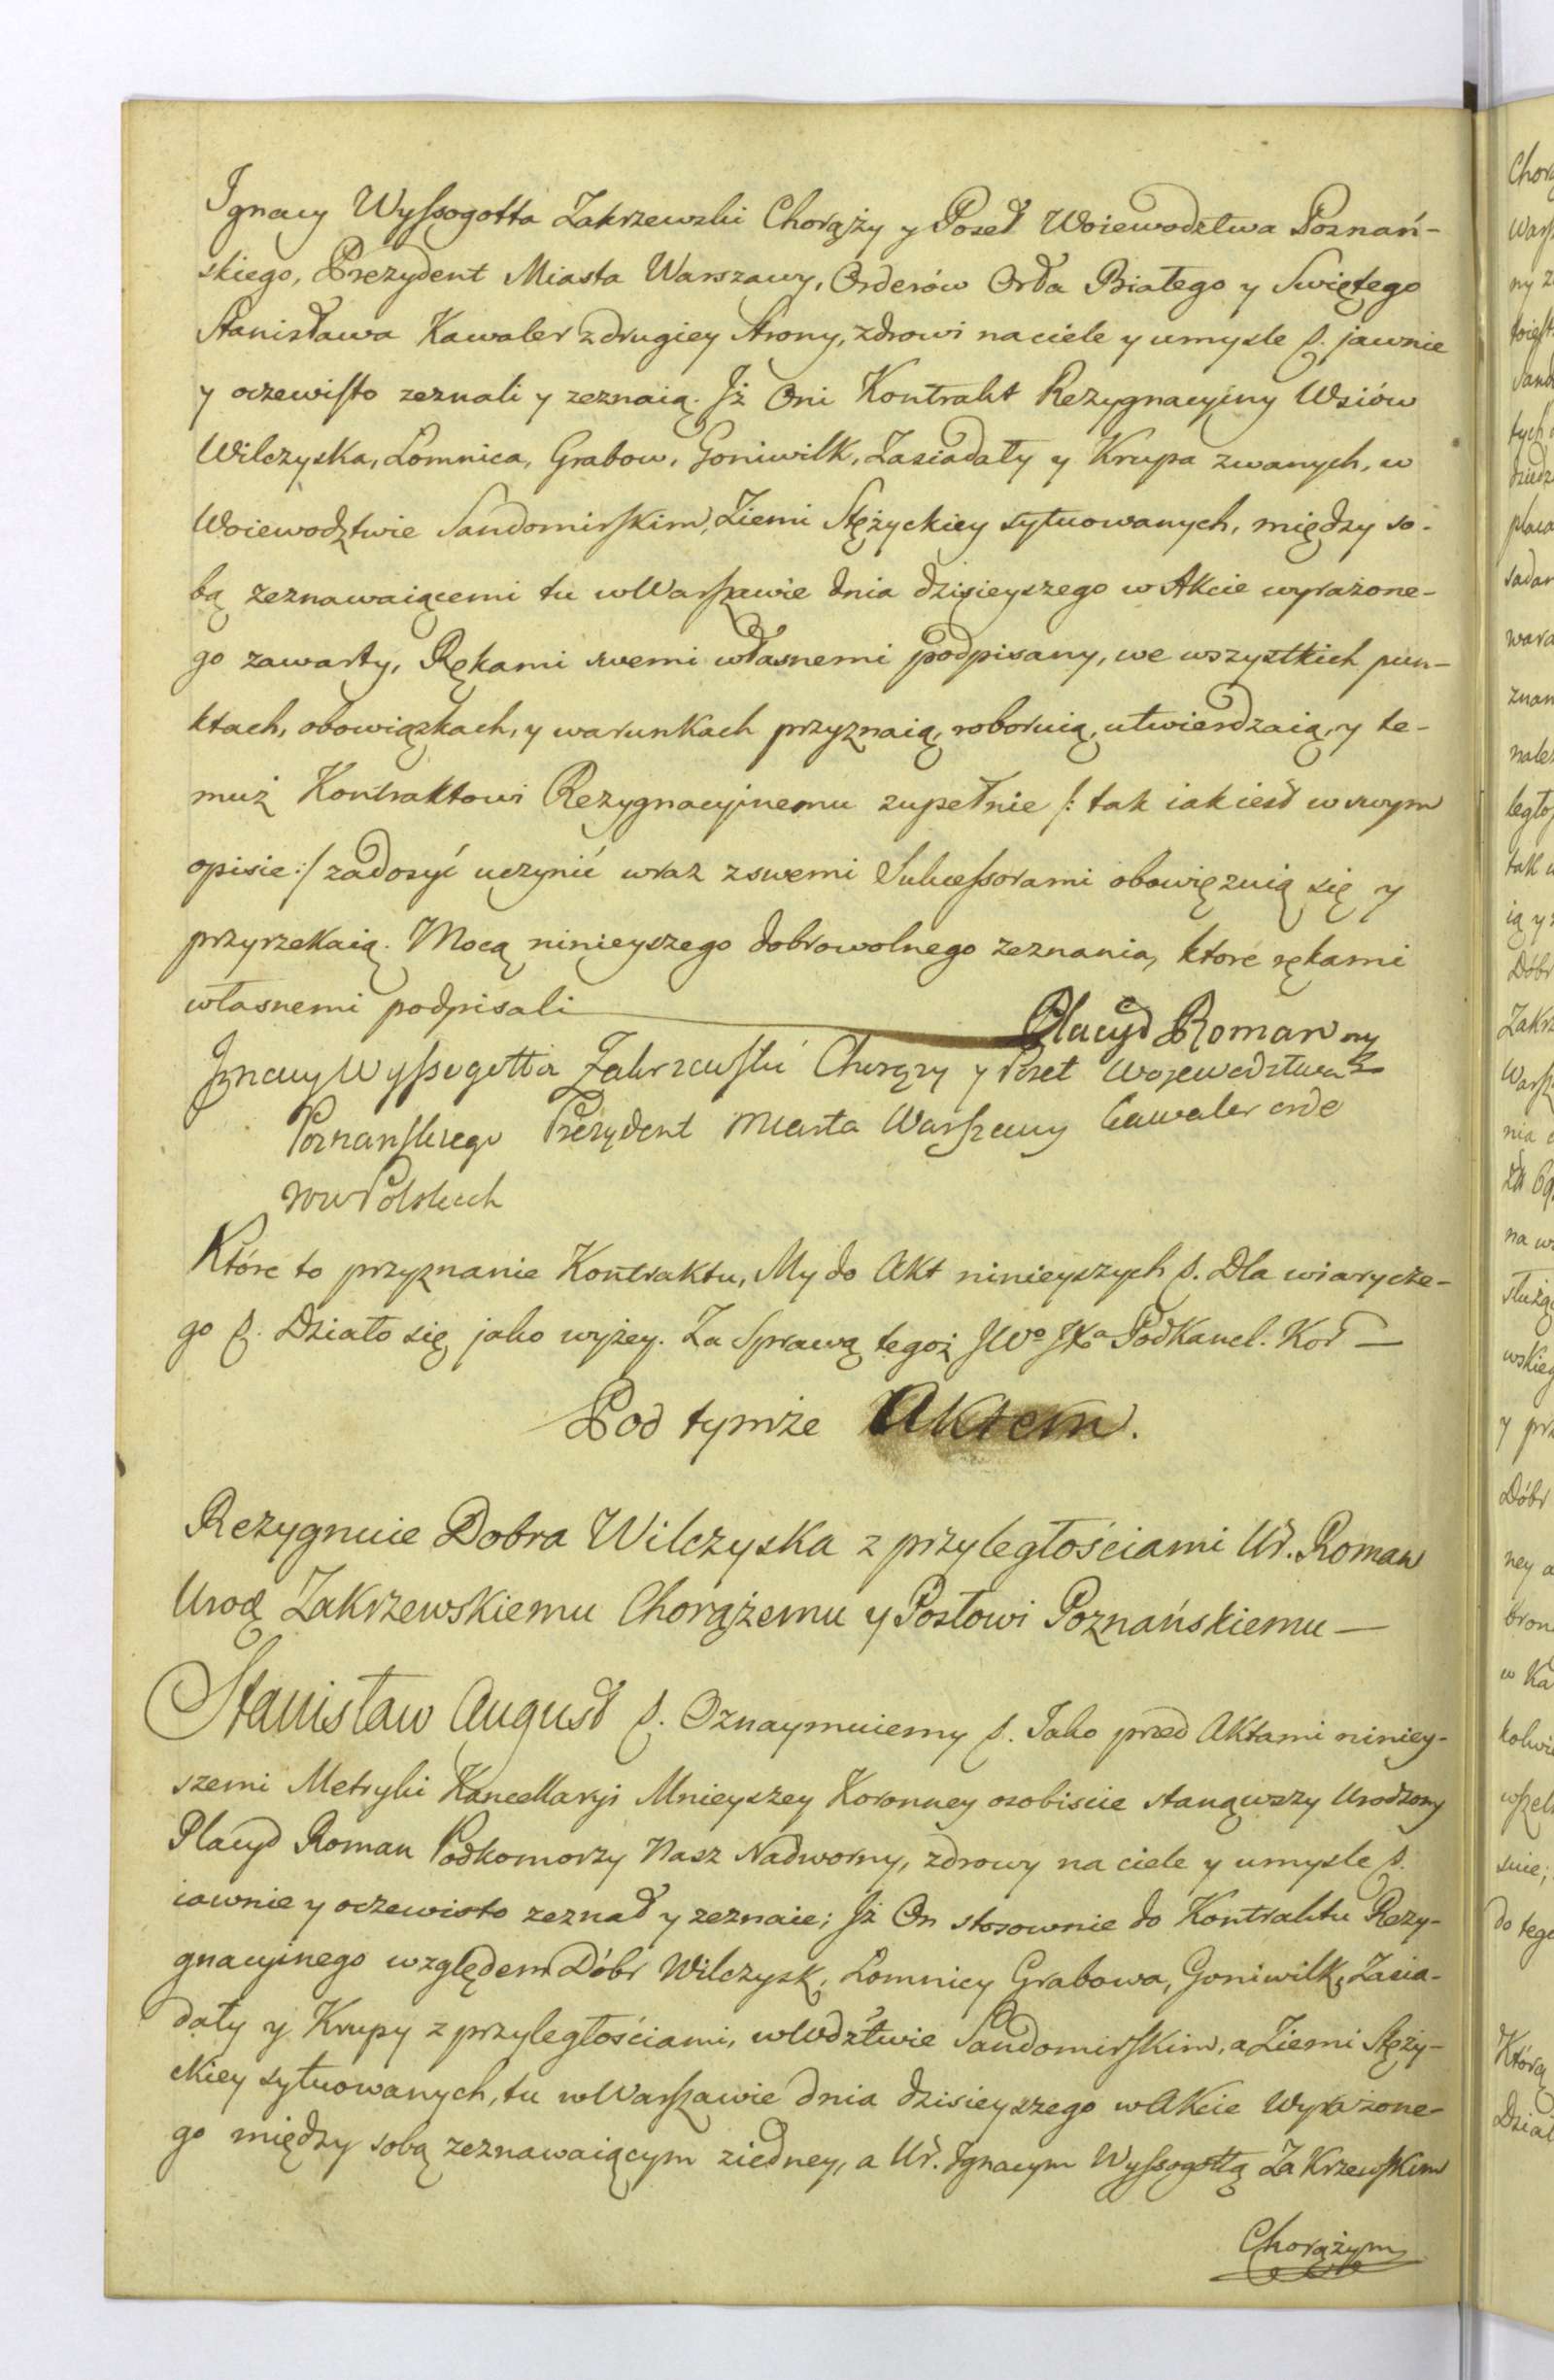 Ignacy Wyssogotta Zakrzewski Chorąży y Poseł Woiewodztwa Poznań-
skiego, Prezydent Miasta Warszawy, Orderów Orła Białego y Swiętego
Stanisława Kawaler z drugiey Strony, zdrowi na ciele y umysle p. jawnie
y oczewisto zeznali y zeznaią. Iż Oni Kontrakt Rezygnacyjny Wsiów
Wilczyska, Lomnica, Grabow, Goniwilk, Zasiadały y Krupa zwanych, w
Woiewodztwie Sandomirskim, Ziemi Stężyckiey sytuowanych, między so-
bą zeznawaiącemi tu w Warszawie dnia dzisieyszego w Akcie wyrażone-
go zawarty, Rękami swemi własnemi podpisany, we wszystkich pun-
ktach, obowiązkach, y warunkach przyznaią, roboruią, utwierdzaią, y te-
muż Kontraktowi Rezygnacyjnemu zupełnie /: tak iak iest w swym
opisie :/ zadosyć uczynić wraz z swemi Sukcessorami obowięzuią się y
przyrzekaią. Mocą ninieyszego dobrowolnego zeznania, ktore rękami
własnemi podpisali
Placyd Roman
Ignacy Wyssogotta Zakrzewski Chorąży y Poseł Wojewodztwa
Poznanskiego Prezydent Miasta Warszawy Kawaler orde
row Polskich
Które to przyznanie Kontraktu, My do Akt ninieyszych p. Dla wiary cze-
go p. Działo się jako wyżey. Za Sprawą tegoż JWo JXa PodKancl. Kor —
Pod tymże Aktem.
Rezygnuie Dobra Wilczyska z przyległościami Ur. Roman
Urod Zakrzewskiemu Chorążemu y Posłowi Poznańskiemu —
Stanisław August p. Oznaymuiemy p. Iako przed Aktami niniey-
szemi Metryki Kancellaryi Mnieyszey Koronney osobiscie stanąwszy Urodzony
Placyd Roman Podkomorzy Nasz Nadworny, zdrowy na ciele y umysle p.
iawnie y oczewisto zeznał y zeznaie; Iż On stosownie do Kontraktu Rezy-
gnacyinego względem Dóbr Wilczysk, Lomnicy Grabowa, Goniwilk, Zasia-
dały y Krupy z przyległościami, w Wdztwie Sandomirskim, a Ziemi Stęży-
ckiey sytuowanych, tu w Warszawie dnia dzisieyszego w Akcie Wyrażone-
go między sobą zeznawaiącym ziedney, a Ur. Ignacym Wyssogottą Zakrzewskim
Chorążym